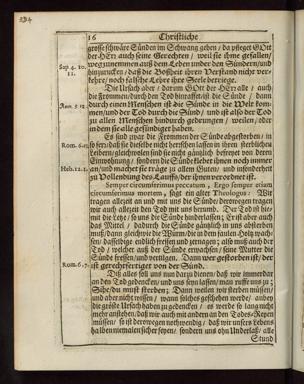 234
16 Christliche
grosse schwäre Sünden im Schwang gehen / da pfleget GOtt
der HErr auch seine Gerechten / weil sie ihme gefallen /
weg zunemmen auß dem Leben under den Sündern / und
Sap. 4. 10.
hinzurucken / daß die Boßheit ihren Verstand nicht ver-
11.
kehre / noch falsche Lehre ihre Seele betriege.
Die Ursach aber / darum GOtt der HErr alle / auch
die Frommen / durch den Tod hinraffet / ist die Sünde / dann
Rom. 5. 12.
durch einen Menschen ist die Sünde in die Welt kom-
men / und der Tod durch die Sünd / und ist also der Tod
zu allen Menschen hindurch gedrungen / weilen / oder
in dem sie alle gesündiget haben.
Es sind zwar die Frommen der Sünde abgestorben / in
Rom. 6.
so fern / daß sie dieselbe nicht herrschen lassen in ihren sterblichen
Leibern / gleichwolen sind sie nicht gäntzlich befreyet von deren
Einwohnung / sondern die Sünde klebet ihnen noch immer
Heb. 12. 1.
an / und machet sie träge zu allem Guten / und insonderheit
zu Vollendung des Lauffs / der ihnen verordnet ist.
Semper circumferimus peccatum, Ergo semper etiam
circumferimus mortem, sagt ein alter Theologus: Wir
tragen allezeit an und mit uns die Sünde / derowegen tragen
wir auch allezeit den Tod mit uns herumb. Der Tod ist hie-
mit die Letze / so uns die Sünde hinderlassen; Er ist aber auch
das Mittel / dadurch die Sünde gäntzlich in uns absterben
muß / dann gleich wie die Würm / die in dem faulen Holtz wach-
sen / dasselbige endlich fressen und zernagen; also muß auch der
Tod / welcher auß der Sünde erwachsen / seine Mutter die
Sünde fressen und vertilgen. Dann wer gestorben ist / der
Rom. 6. 7.
ist gerechtfertiget von der Sünd.
Diß alles soll uns nun darzu dienen / daß wir immerdar
an den Tod gedencken / und uns seyn lassen / man ruffe uns zu:
Sihe / du must sterben; Dann weilen wir sterben müssen /
und aber nicht wissen / wann solches geschehen werde /
die grosse Ursach haben zu gedencken / es werde so lang nicht
mehr anstehen / daß wir auch mit andern an den Todes-Reyen
müssen / so ist derowegen nothwendig / daß wir unsers Lebens
halben niemalen sicher seyen / sondern uns ohn Underlaß / alle
Stund